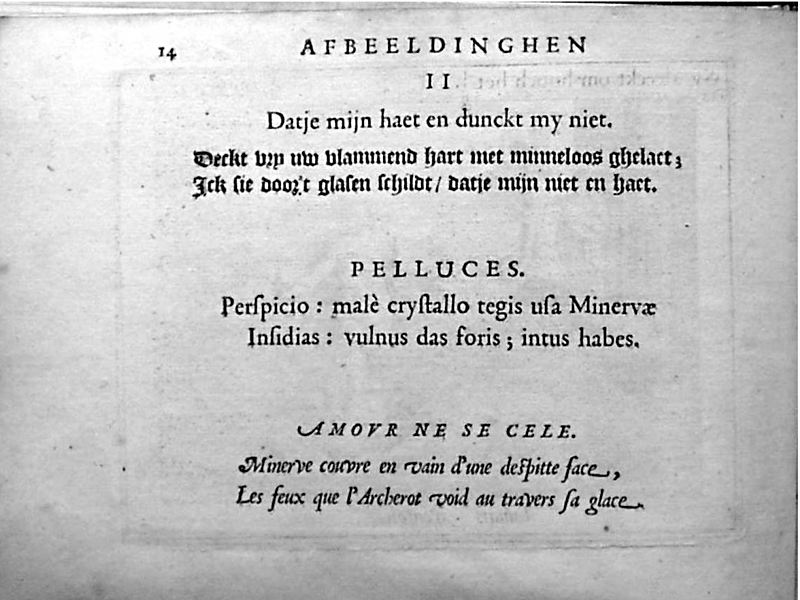 14
AFBEELDINGHEN
II
Datje mijn haet en dunckt my niet.
Deckt vry uw vlammend hart met minneloos ghelaet;
Ick sie door't glasen schildt/ datje mijn niet en haet.
PELLUCES.
Perſpicio : malè cryſtallo tegis uſa Minervæ
Inſidias : vulnus das foris ; intus habes.
AMOVR NE SE CELE.
Minerve couvre en vain d'une deſpitte face,
Les feux que l'Archerot void au travers ſa glace.